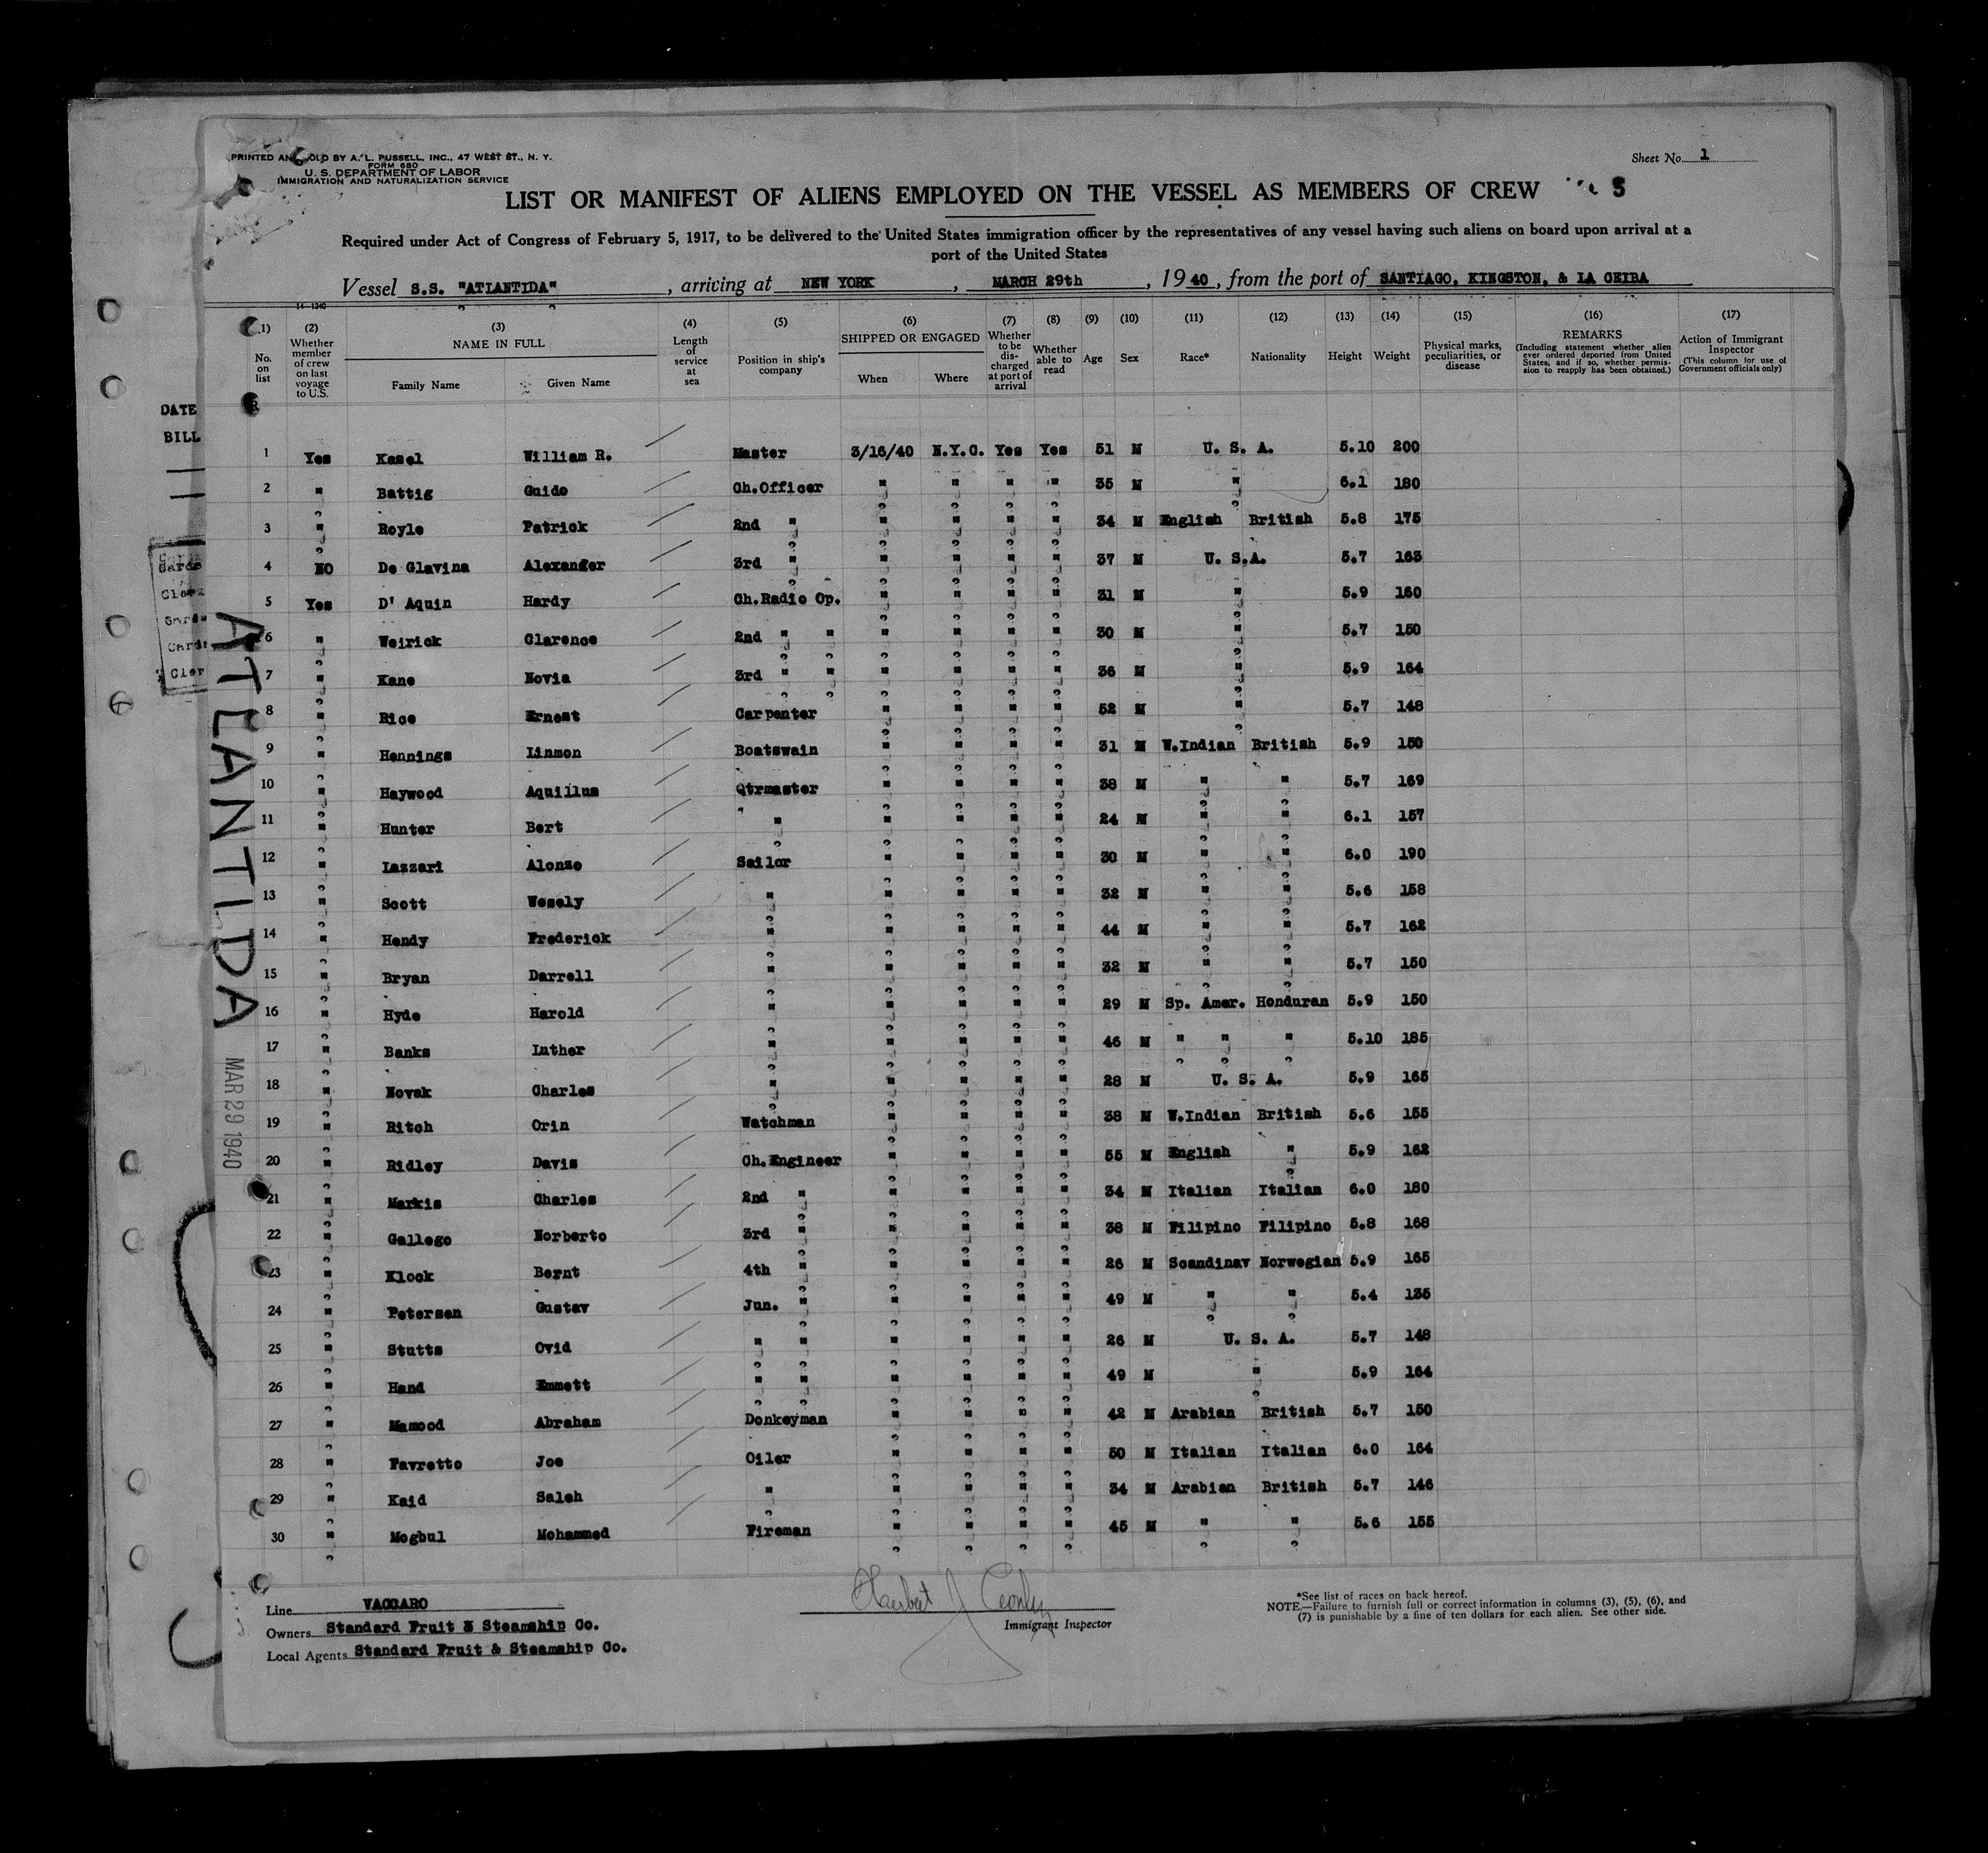 PRINTED AND SOLD BY A. L. PUSSELL, INC., 47 WEST ST., N. Y.
FORM 680
U. S. DEPARTMENT OF LABOR
IMMIGRATION AND NATURALIZATION SERVICE
Sheet No. 1
LIST OR MANIFEST OF ALIENS EMPLOYED ON THE VESSEL AS MEMBERS OF CREW
5
Required under Act of Congress of February 5, 1917, to be delivered to the United States immigration officer by the representatives of any vessel having such aliens on board upon arrival at a
port of the United States
Vessel S.S. "ATLANTIDA", arriving at NEW YORK, MARCH 29th, 1940, from the port of SANTIAGO, KINGSTON, & LA CEIBA
14—1240
(1) (2) (3) (4) (5) (6) (7) (8) (9) (10) (11) (12) (13) (14) (15) (16) (17)
No. on list
Whether member of crew on last voyage to U.S.
NAME IN FULL
Family Name Given Name
Length of service at sea
Position in ship's company
SHIPPED OR ENGAGED
When Where
Whether to be discharged at port of arrival
Whether able to read
Age Sex Race* Nationality Height Weight
Physical marks, peculiarities, or disease
REMARKS
(Including statement whether alien ever ordered deported from United States, and if so, whether permission to reapply has been obtained.)
Action of Immigrant Inspector
(This column for use of Government officials only)
DATE
BILL
1 Yes Kasel William R. Master 3/16/40 N.Y.C. Yes Yes 51 M U. S. A. 5.10 200
2 " Battig Guido Ch.Officer " " " " 35 M " 6.1 180
3 " Royle Patrick 2nd " " " " " 34 M English British 5.8 175
4 NO De Glavina Alexanfer 3rd " " " " " 37 M U. S.A. 5.7 163
5 Yes D' Aquin Hardy Ch.Radio Op. " " " " 31 M " 5.9 160
6 " Weirick Clarence 2nd " " " " " " 30 M " 5.7 150
7 " Kane Novia 3rd " " " " " " 36 M " 5.9 164
8 " Rice Ernest Carpenter " " " " 52 M " 5.7 148
9 " Hennings Linmon Boatswain " " " " 31 M W.Indian British 5.9 150
10 " Haywood Aquillus Qtrmaster " " " " 38 M " " 5.7 169
11 " Hunter Bert " " " " " 24 M " " 6.1 157
12 " Lazzari Alonzo Sailor " " " " 30 M " " 6.0 190
13 " Scott Wesely " " " " " 32 M " " 5.6 158
14 " Hendy Frederick " " " " " 44 M " " 5.7 162
15 " Bryan Darrell " " " " " 32 M " " 5.7 150
16 " Hyde Harold " " " " " 29 M Sp. Amer. Honduran 5.9 150
17 " Banks Luther " " " " " 46 M " " " 5.10 185
18 " Novak Charles " " " " " 28 M U. S. A. 5.9 165
19 " Ritch Orin Watchman " " " " 38 M W.Indian British 5.6 155
20 " Ridley Davis Ch.Engineer " " " " 55 M English " 5.9 162
21 " Markis Charles 2nd " " " " " 34 M Italian Italian 6.0 180
22 " Gallego Norberto 3rd " " " " " 38 M Filipino Filipino 5.8 168
23 " Klock Bernt 4th " " " " " 26 M Scandinav Norwegian 5.9 165
24 " Petersen Gustav Jun. " " " " " 49 M " " 5.4 135
25 " Stutts Ovid " " " " " " 26 M U. S. A. 5.7 148
26 " Hand Emmett " " " " " " 49 M " 5.9 164
27 " Mamood Abraham Donkeyman " " " " 42 M Arabian British 5.7 150
28 " Favretto Joe Oiler " " " " 50 M Italian Italian 6.0 164
29 " Kaid Saleh " " " " " 34 M Arabian British 5.7 146
30 " Mogbul Mohammed Fireman " " " " 45 M " " 5.6 155
ATLANTIDA
MAR 29 1940
Line VACCARO
Owners Standard Fruit & Steamship Co.
Local Agents Standard Fruit & Steamship Co.
Herbert J.
Immigrant Inspector
*See list of races on back hereof.
NOTE.—Failure to furnish full or correct information in columns (3), (5), (6), and
(7) is punishable by a fine of ten dollars for each alien. See other side.